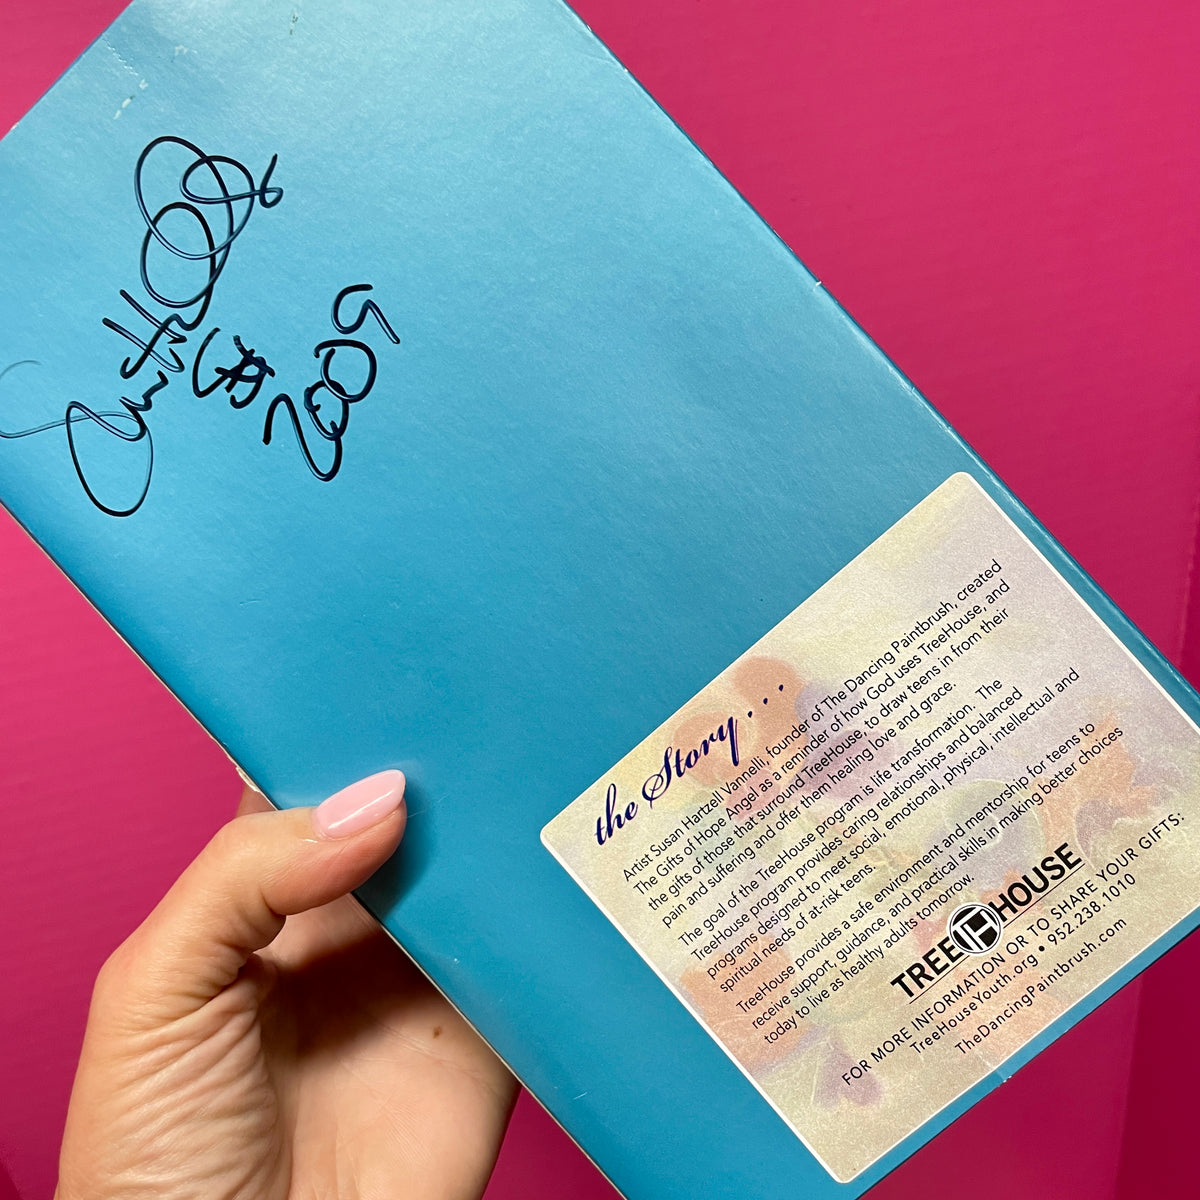 2009
the Story . . .
Artist Susan Hartzell Vannelli, founder of The Dancing Paintbrush, created
The Gifts of Hope Angel as a reminder of how God uses TreeHouse, and
the gifts of those that surround TreeHouse, to draw teens in from their
pain and suffering and offer them healing love and grace.
The goal of the TreeHouse program is life transformation. The
TreeHouse program provides caring relationships and balanced
programs designed to meet social, emotional, physical, intellectual and
spiritual needs of at-risk teens.
TreeHouse provides a safe environment and mentorship for teens to
receive support, guidance, and practical skills in making better choices
today to live as healthy adults tomorrow.
TREE HOUSE
FOR MORE INFORMATION OR TO SHARE YOUR GIFTS:
TreeHouseYouth.org • 952.238.1010
TheDancingPaintbrush.com